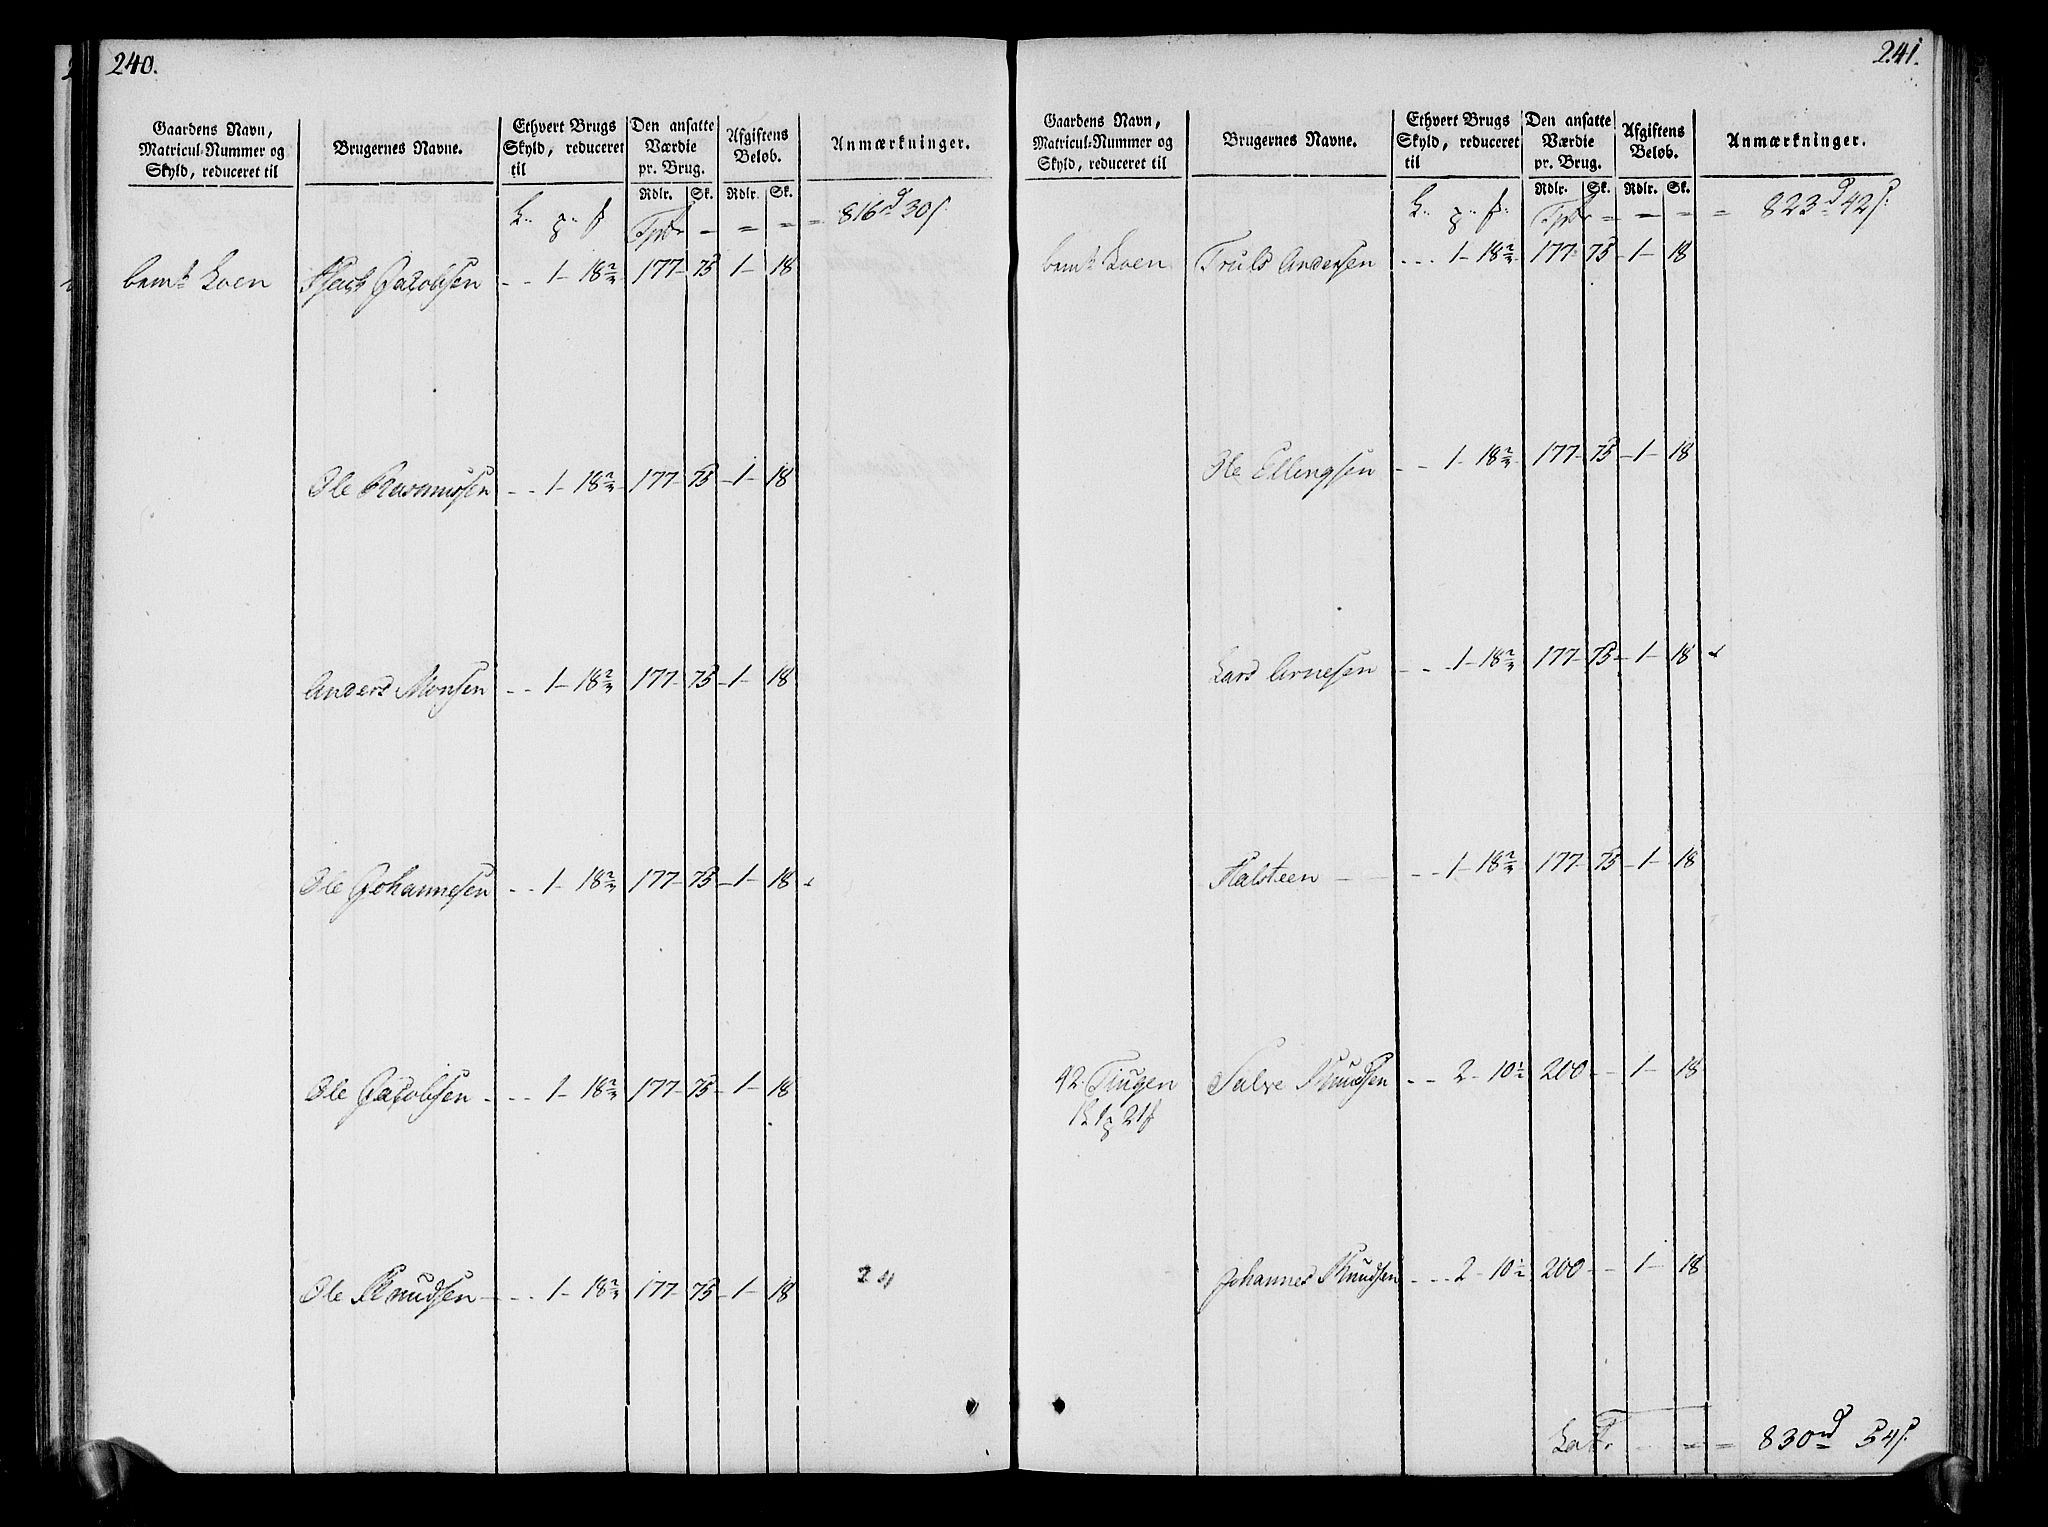 240.
Gaardens Navn, Matricul-Nummer og Skyld, reduceret til | Brugernes Navne. | Ethvert Brugs Skyld, reduceret til | Den ansatte Værdie pr. Brug. Rdlr. Sk. | Afgiftens Beløb. Rdlr. Sk. | Anmærkninger.
816 d 30 s.
Loen Jacobsen - - 1 - 18 2/7 177 - 75 - 1 - 18
Ole Rasmussen - - 1 - 18 2/7 177 - 75 - 1 - 18
Anders Monsen - - 1 - 18 2/7 177 - 75 - 1 - 18
Ole Johannesen - - 1 - 18 2/7 177 - 75 - 1 - 18
Ole Jacobsen - - - 1 - 18 2/7 177 - 75 - 1 - 18
Ole Knudsen - - - 1 - 18 2/7 177 - 75 - 1 - 18
241.
Gaardens Navn, Matricul-Nummer og Skyld, reduceret til | Brugernes Navne. | Ethvert Brugs Skyld, reduceret til | Den ansatte Værdie pr. Brug. Rdlr. Sk. | Afgiftens Beløb. Rdlr. Sk. | Anmærkninger.
823 d 42 s.
Loen Truls Andersen - - - 1 - 18 2/7 177 - 75 - 1 - 18
Ole Ellingsen - - 1 - 18 2/7 177 - 75 - 1 - 18
Lars Arnesen - - - 1 - 18 2/7 177 - 75 - 1 - 18
Halsteen - - - 1 - 18 2/7 177 - 75 - 1 - 18
42. Tiugen Salve Knudsen - - 2 - 10 1/2 200 - - 1 - 18
Johannes Knudsen - - - 2 - 10 1/2 200 - - 1 - 18
Latr - - = = 830 rd 54 s.